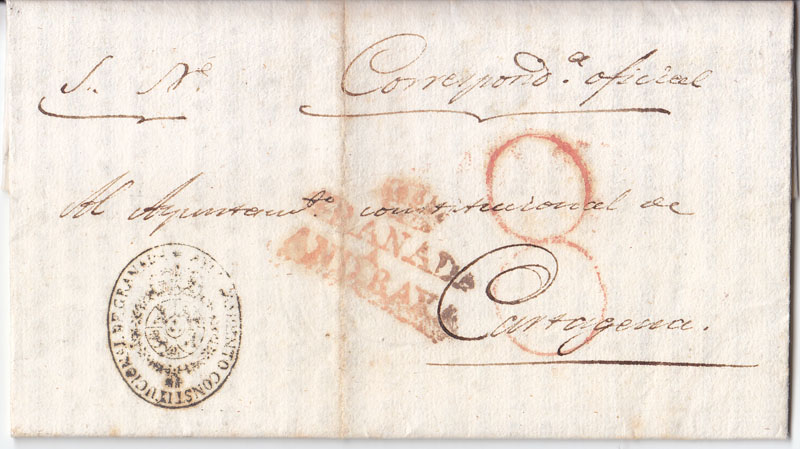 S. N.
Correspond.ª oficial
Al Ayuntam.to constitucional de
GRANADA
Cartagena.
AYUNTAMIENTO CONSTITUCIONAL DE GRANADA